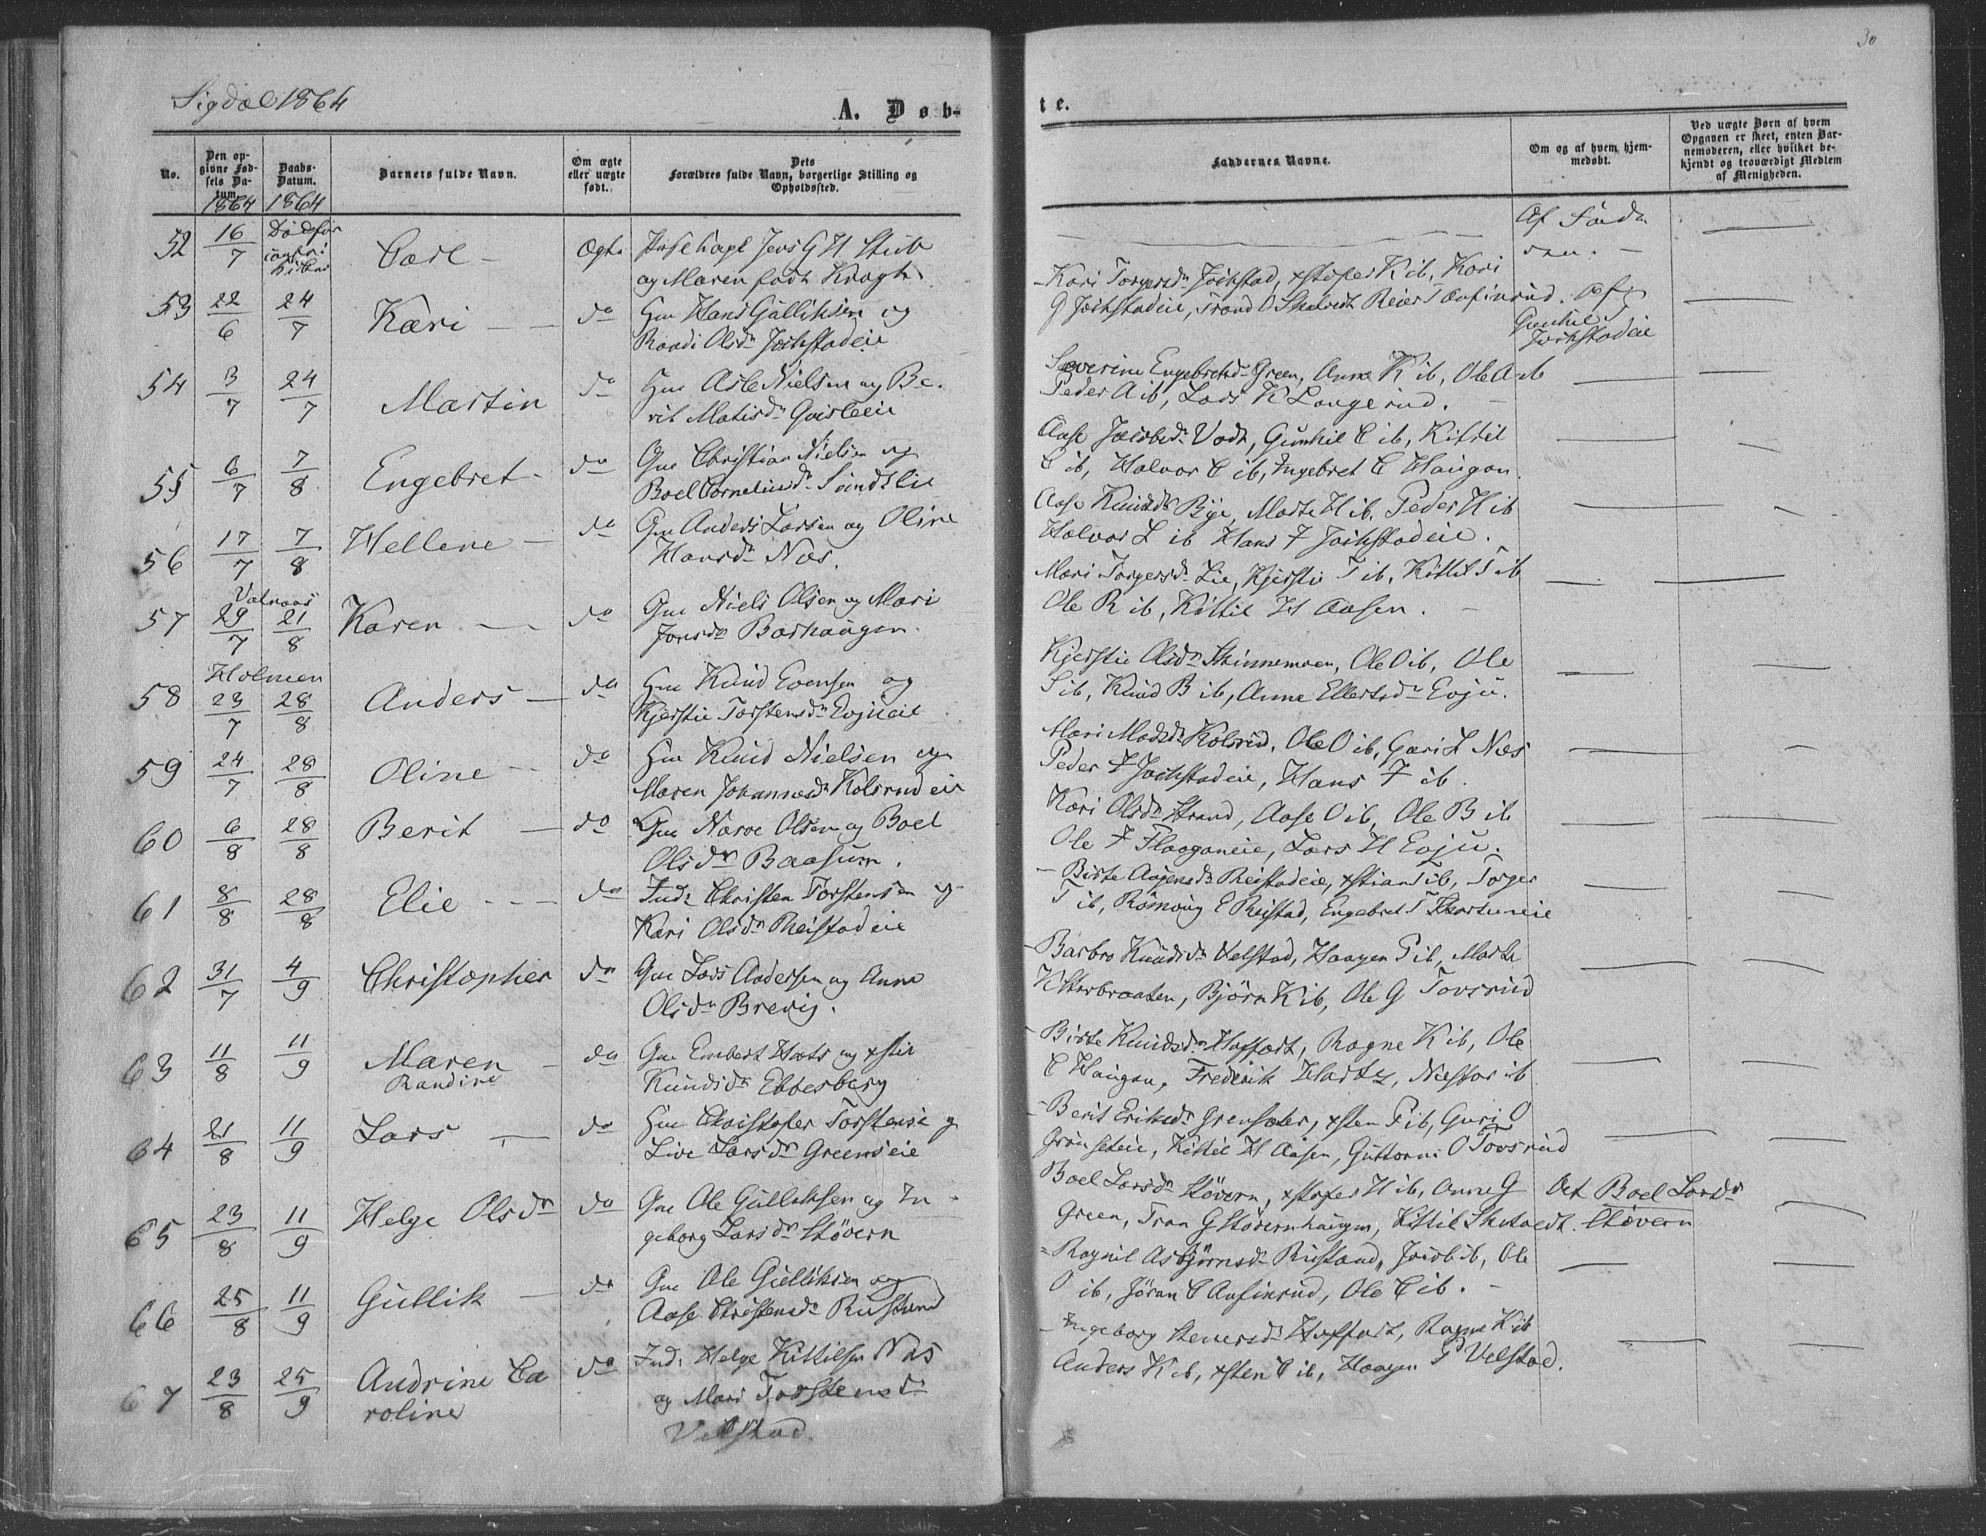 30
Sigdal 1864
A. Døb-
te.
No.
Den op-
givne Fød-
sels Da-
tum.
1864
Daabs-
Datum.
1864
Barnets fulde Navn.
Om ægte
eller uægte
født.
Dets
Forældres fulde Navn, borgerlige Stilling og
Opholdssted.
Faddernes Navne.
Om og af hvem hjem-
medøbt.
Ved uægte Børn af hvem
Opgaven er skeet, enten Bar-
nemoderen, eller hvilket be-
kjendt og troværdigt Medlem
af Menigheden.
52 16/7
Carl - Ægte Jens G H Stub
og Maren født Kragh
Af
53 22/6 24/7 Kari - do Gm Hans Gulliksen og
Randi Olsdr Jokstadeie
Kari Torgersdr Jokstad, xstofer K ib, Kari
G Jokstadeie, Trond O Skatvedt Reier T Anfinrud. Af
Gunhil
Jokstadeie
54 3/7 24/7 Martin do Gm Asle Nielsen og Be-
rit Matisdr
Severine Engebretsdr Green, Anne K ib, Ole A ib
Peder A ib, Lars K Langerud.
55 6/7 7/8 Engebret - do Gm Christian Nielsen og
Boel Corneliusdr
Aase Jacobsdr Gunhil C ib, Kittil
C ib, Halvor C ib, Ingebret C Haugan
56 17/7 7/8 Hellene - do Gm Anders Larsen og Oline
Hansdr Næs.
Aase Knudsdr Bye, Marte H ib, Peder H ib
Halvor L ib Hans F Jokstadeie.
57 29/7 21/8 Karen - do Gm Niels Olsen og Mari
Jonsdr Barhaugen.
Mari Torgersdr Lie, Kjerstie T ib, Kittil T ib
Ole R ib, Kittil H Aasen.
Holmen
58 23/7 28/8 Anders - do Gm Knud Evensen og
Kjerstie Torstensdr Evjueie
Kjerstie Olsdr Skinnemoen, Ole O ib, Ole
S ib, Knud B ib, Anne Ellertsdr Evju.
59 24/7 28/8 Oline - do Gm Knud Nielsen og
Maren Johannesdr Kolsrudeie
Mari Madsdr Kolsrud, Ole O ib, Guri L Næs
Peder F Jokstadeie, Hans F ib.
60 6/8 28/8 Berit - do Gm Narve Olsen og Boel
Olsdr Baasum.
Kari Olsdr Strand, Aase O ib, Ole B ib
Ole F Flaaganeie, Lars H Evju.
61 8/8 28/8 Elie - do Indr Christen Torstensen og
Kari Olsdr Reistadeie
Birte Aagensdr Reistadeie, xstian T ib, Torger
T ib, Rømoug E Reistad, Engebret T
62 31/7 4/9 Christopher do Gm Lars Andersen og Anne
Olsdr Brevig.
Barbro Knudsdr Velstad, Haagen P ib, Marte
K Bjørn K ib, Ole G Tovsrud
63 11/8 11/9 Maren
Randine - do Gm Embert Hals og xstie
Knudsdr Ebbesberg
Birte Knudsdr Hoffart, Ragne K ib, Ole
C Haugan, Frederik Hartz, Nestor ib
64 21/8 11/9 Lars - do Gm Christofer Torstensen og
Live Larsdr Greenseie
Berit Eriksdr Grensæter, xsten P ib, Guri O
Grønseteie, Kittil H Aasen, Guttorm O Tovsrud
65 23/8 11/9 Helge Olsdr do Gm Ole Gulliksen og In-
geborg Larsdr Støvern
Boel Larsdr Støvern, xstofer H ib, Anne G
Green, Tron G Støvernhaugen, Kittil Skatvedt.
Af Boel Larsdr
Støvern
66 25/8 11/9 Gullik - do Gm Ole Gulliksen og
Aase Christensdr Rustand
Ragnil Asbjørnsdr Rustand, Jacob ib, Ole
O ib, Jøran C Anfinrud, Ole C ib.
67 23/8 25/9 Andrine Ca
roline do Indr Helge Kittilsen Næs
og Mari Torstensdr
Velstad.
Ingeborg Stenersdr Hoffart, Ragne K ib
Anders K ib, xsten C ib, Haagen P Velstad.